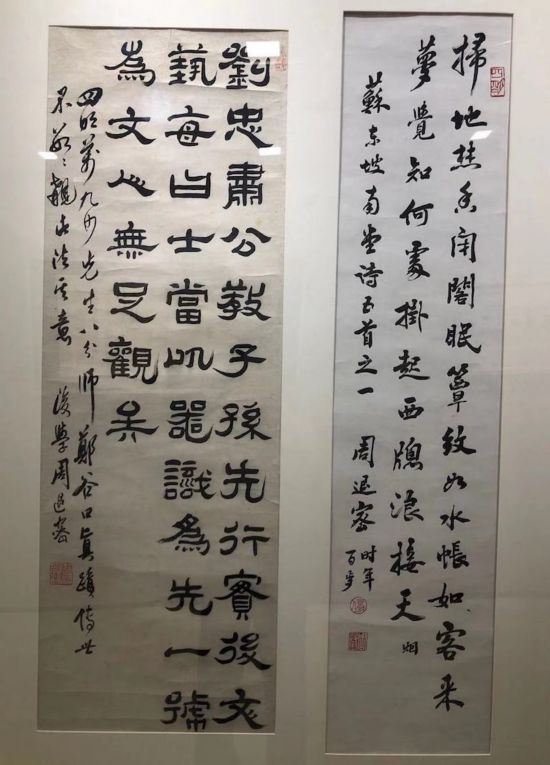 掃地焚香閉閣眠簟紋如水帳如客来
夢覺知何處掛起西牕浪接天烟
蘇东坡南堂诗五首之一 周退密时年百岁
劉忠肅公教子孫先行實後文
藝每曰士當以器識為先一號
為文人無足觀矣
四明萬九沙先生八分師鄭谷口真蹟傳世
不 此法其意 後學周退密